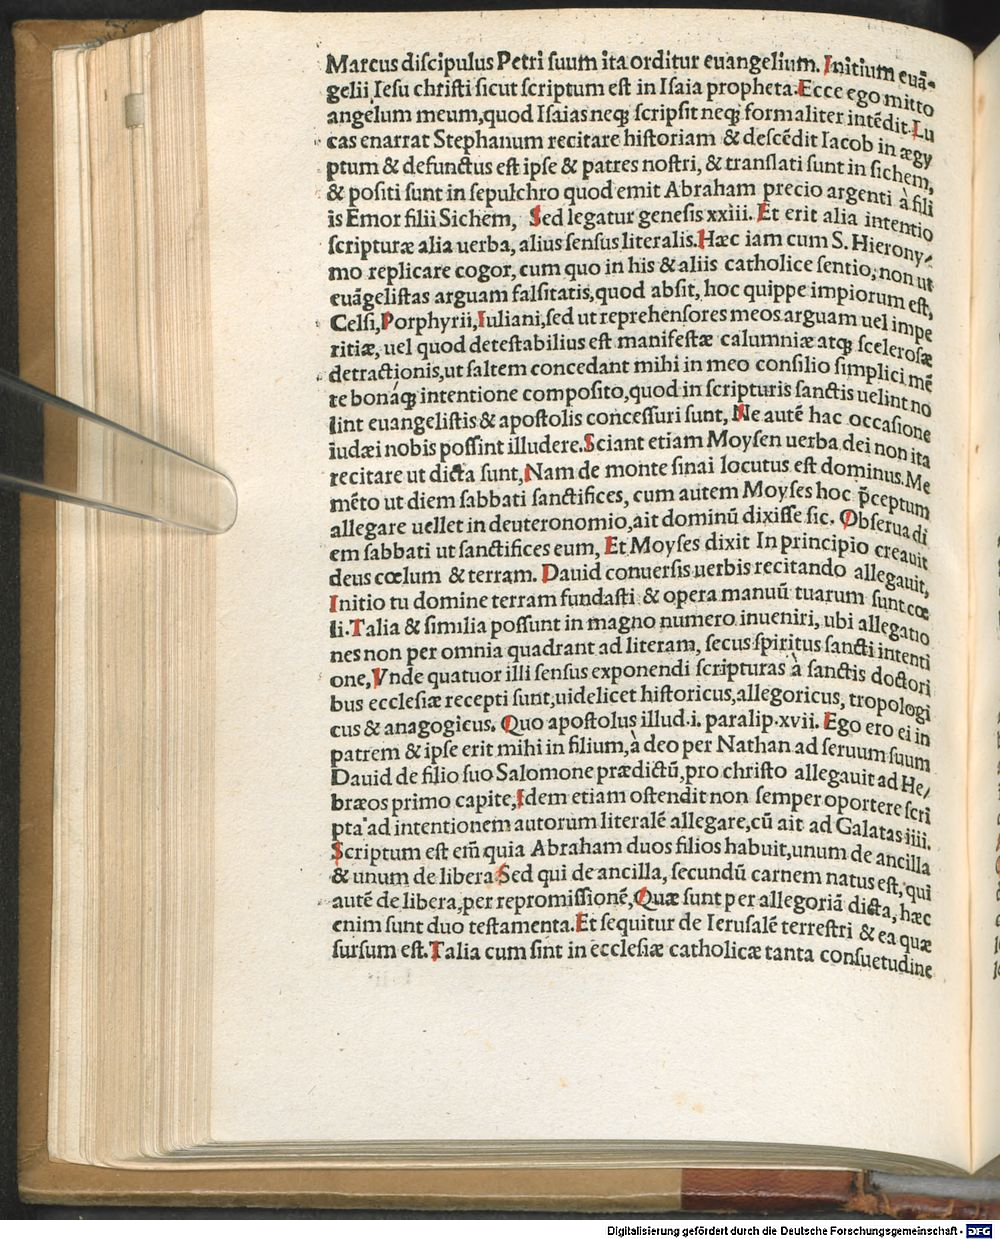 Marcus discipulus Petri suum ita orditur euangelium. Initium euã-
gelii Iesu christi sicut scriptum est in Isaia propheta. Ecce ego mitto
angelum meum, quod Isaias neqȝ scripsit neqȝ formaliter intēdit. Lu
cas enarrat Stephanum recitare historiam & descēdit Iacob in ægy
ptum & defunctus est ipse & patres nostri, & translati sunt in sichem,
& positi sunt in sepulchro quod emit Abraham precio argenti à fili
is Emor filii Sichem, Sed legatur genesis xxiii. Et erit alia intentio
scripturæ alia uerba, alius sensus literalis. Hæc iam cum S. Hierony-
mo replicare cogor, cum quo in his & aliis catholice sentio, non ut
euãgelistas arguam falsitatis, quod absit, hoc quippe impiorum est,
Celsi, Porphyrii, Iuliani, sed ut reprehensores meos arguam uel impe
ritiæ, uel quod detestabilius est manifestæ calumniæ atqȝ scelerosæ
detractionis, ut saltem concedant mihi in meo consilio simplici mē
te bonáqȝ intentione composito, quod in scripturis sanctis uelint no
lint euangelistis & apostolis concessuri sunt, Ne autē hac occasione
iudæi nobis possint illudere. Sciant etiam Moysen uerba dei non ita
recitare ut dicta sunt, Nam de monte sinai locutus est dominus. Me
mēto ut diem sabbati sanctifices, cum autem Moyses hoc p̄ceptum
allegare uellet in deuteronomio, ait dominū dixisse sic. Obserua di
em sabbati ut sanctifices eum, Et Moyses dixit In principio creauit
deus cœlum & terram. Dauid conuersis uerbis recitando allegauit,
Initio tu domine terram fundasti & opera manuū tuarum sunt cœ
li. Talia & similia possunt in magno numero inueniri, ubi allegatio
nes non per omnia quadrant ad literam, secus spiritus sancti intenti
one, Vnde quatuor illi sensus exponendi scripturas à sanctis doctori
bus ecclesiæ recepti sunt, uidelicet historicus, allegoricus, tropologi
cus & anagogicus. Quo apostolus illud .i. paralip. xvii. Ego ero ei in
patrem & ipse erit mihi in filium, à deo per Nathan ad seruum suum
Dauid de filio suo Salomone prædictū, pro christo allegauit ad He-
bræos primo capite, Idem etiam ostendit non semper oportere scri
pta ad intentionem autorum literalē allegare, cū ait ad Galatas .iiii.
Scriptum est em̄ quia Abraham duos filios habuit, unum de ancilla
& unum de libera Sed qui de ancilla, secundū carnem natus est, qui
autē de libera, per repromissionē, Quæ sunt per allegoriã dicta, hæc
enim sunt duo testamenta. Et sequitur de Ierusalē terrestri & ea quæ
sursum est. Talia cum sint in ecclesiæ catholicæ tanta consuetudine
Digitalisierung gefördert durch die Deutsche Forschungsgemeinschaft - DFG